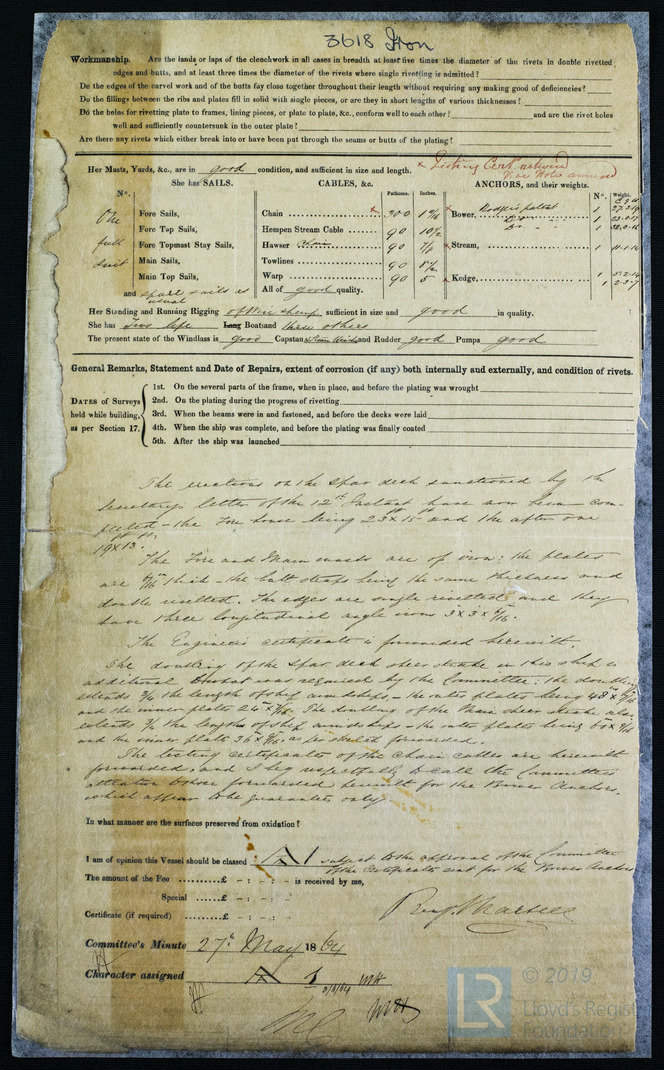 3618 Iron
Workmanship. Are the lands or laps of the clenchwork in all cases in breadth at least five times the diameter of the rivets in double rivetted
edges and butts, and at least three times the diameter of the rivets where single rivetting is admitted?
Do the edges of the carvel work and of the butts fay close together throughout their length without requiring any making good of deficiencies?
Do the fillings between the ribs and plates fill in solid with single pieces, or are they in short lengths of various thicknesses?
Do the holes for rivetting plate to frames, lining pieces, or plate to plate, &c., conform well to each other? and are the rivet holes
well and sufficiently countersunk in the outer plate?
Are there any rivets which either break into or have been put through the seams or butts of the plating?
Her Masts, Yards, &c., are in good condition, and sufficient in size and length.
× Testing Cert
She has SAILS. CABLES, &c. ANCHORS, and their weights.
N°. Fathoms. Inches. N°. Weight.
One Fore Sails, Chain × 300 Bower, Rodgers patent 1
Fore Top Sails, Hempen Stream Cable 90 10/2 1
full Fore Topmast Stay Sails, Hawser Chain 90 Stream, 1
suit Main Sails, Towlines 90
Main Top Sails, Warp 90 5 Kedge, 1
and spare sails as usual All of good quality. 1
Her Standing and Running Rigging of Wire & hemp sufficient in size and good in quality.
She has Two life Long Boat and three others
The present state of the Windlass is good Capstan and Rudder good Pumps good
General Remarks, Statement and Date of Repairs, extent of corrosion (if any) both internally and externally, and condition of rivets.
DATES of Surveys held while building, as per Section 17.
1st. On the several parts of the frame, when in place, and before the plating was wrought
2nd. On the plating during the progress of rivetting
3rd. When the beams were in and fastened, and before the decks were laid
4th. When the ship was complete, and before the plating was finally coated
5th. After the ship was launched
The erections on the spar deck sanctioned by the
Secretary's letter of the 12th Instant have now been com-
pleted - the Fore house being 23 x 15 and the after one
19 x 13.
The Fore and Main masts are of iron: the plates
are thick - the butt straps being the same thickness and
double rivetted. The edges are single rivetted and they
have three longitudinal angle irons 3 x 3 x 6/16.
The Engineer's certificate is forwarded herewith.
The doubling of the spar deck sheer strake in this ship is
additional to what was required by the Committee: the doubling
extends 3/4 the length of ship amidships, - the outer plates being 48 x
and the inner plate 24 x The doubling of the Main sheer strake also
extends 3/4 the length of ship amidships - the outer plates being
and the inner plate 36 x as per sketch forwarded.
The testing certificates of the chain cables are herewith
forwarded, and I beg respectfully to call the Committee's
attention to those forwarded herewith for the Bower Anchors,
which appear to be guarantees only
In what manner are the surfaces preserved from oxidation?
I am of opinion this Vessel should be classed A 1 subject to the approval of the Committee
of the Certificates sent for the Bower Anchors
The amount of the Fee ......... £ - : - : - is received by me,
Special ...... £ - : - : -
Certificate (if required) ...... £ - : - : -
Committee's Minute 27th May 1864
Character assigned A 1
© 2019
LR
Lloyd's Register
Foundation